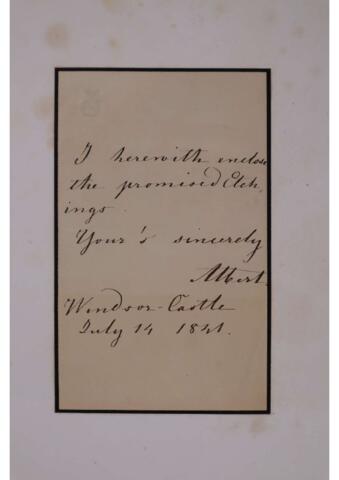 I herewith enclose
the promised Etch,
ings.
Your's sincerely
Albert.
Windsor-Castle
July 14 1841.